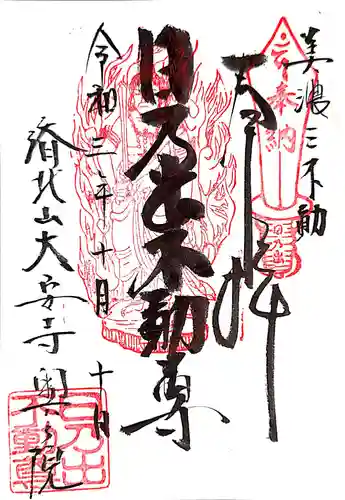 美濃三不動
奉納
日乃出
奉拝
日乃出不動尊
令和三年十月十日
濟北山大安寺奥之院
日乃出
不動尊